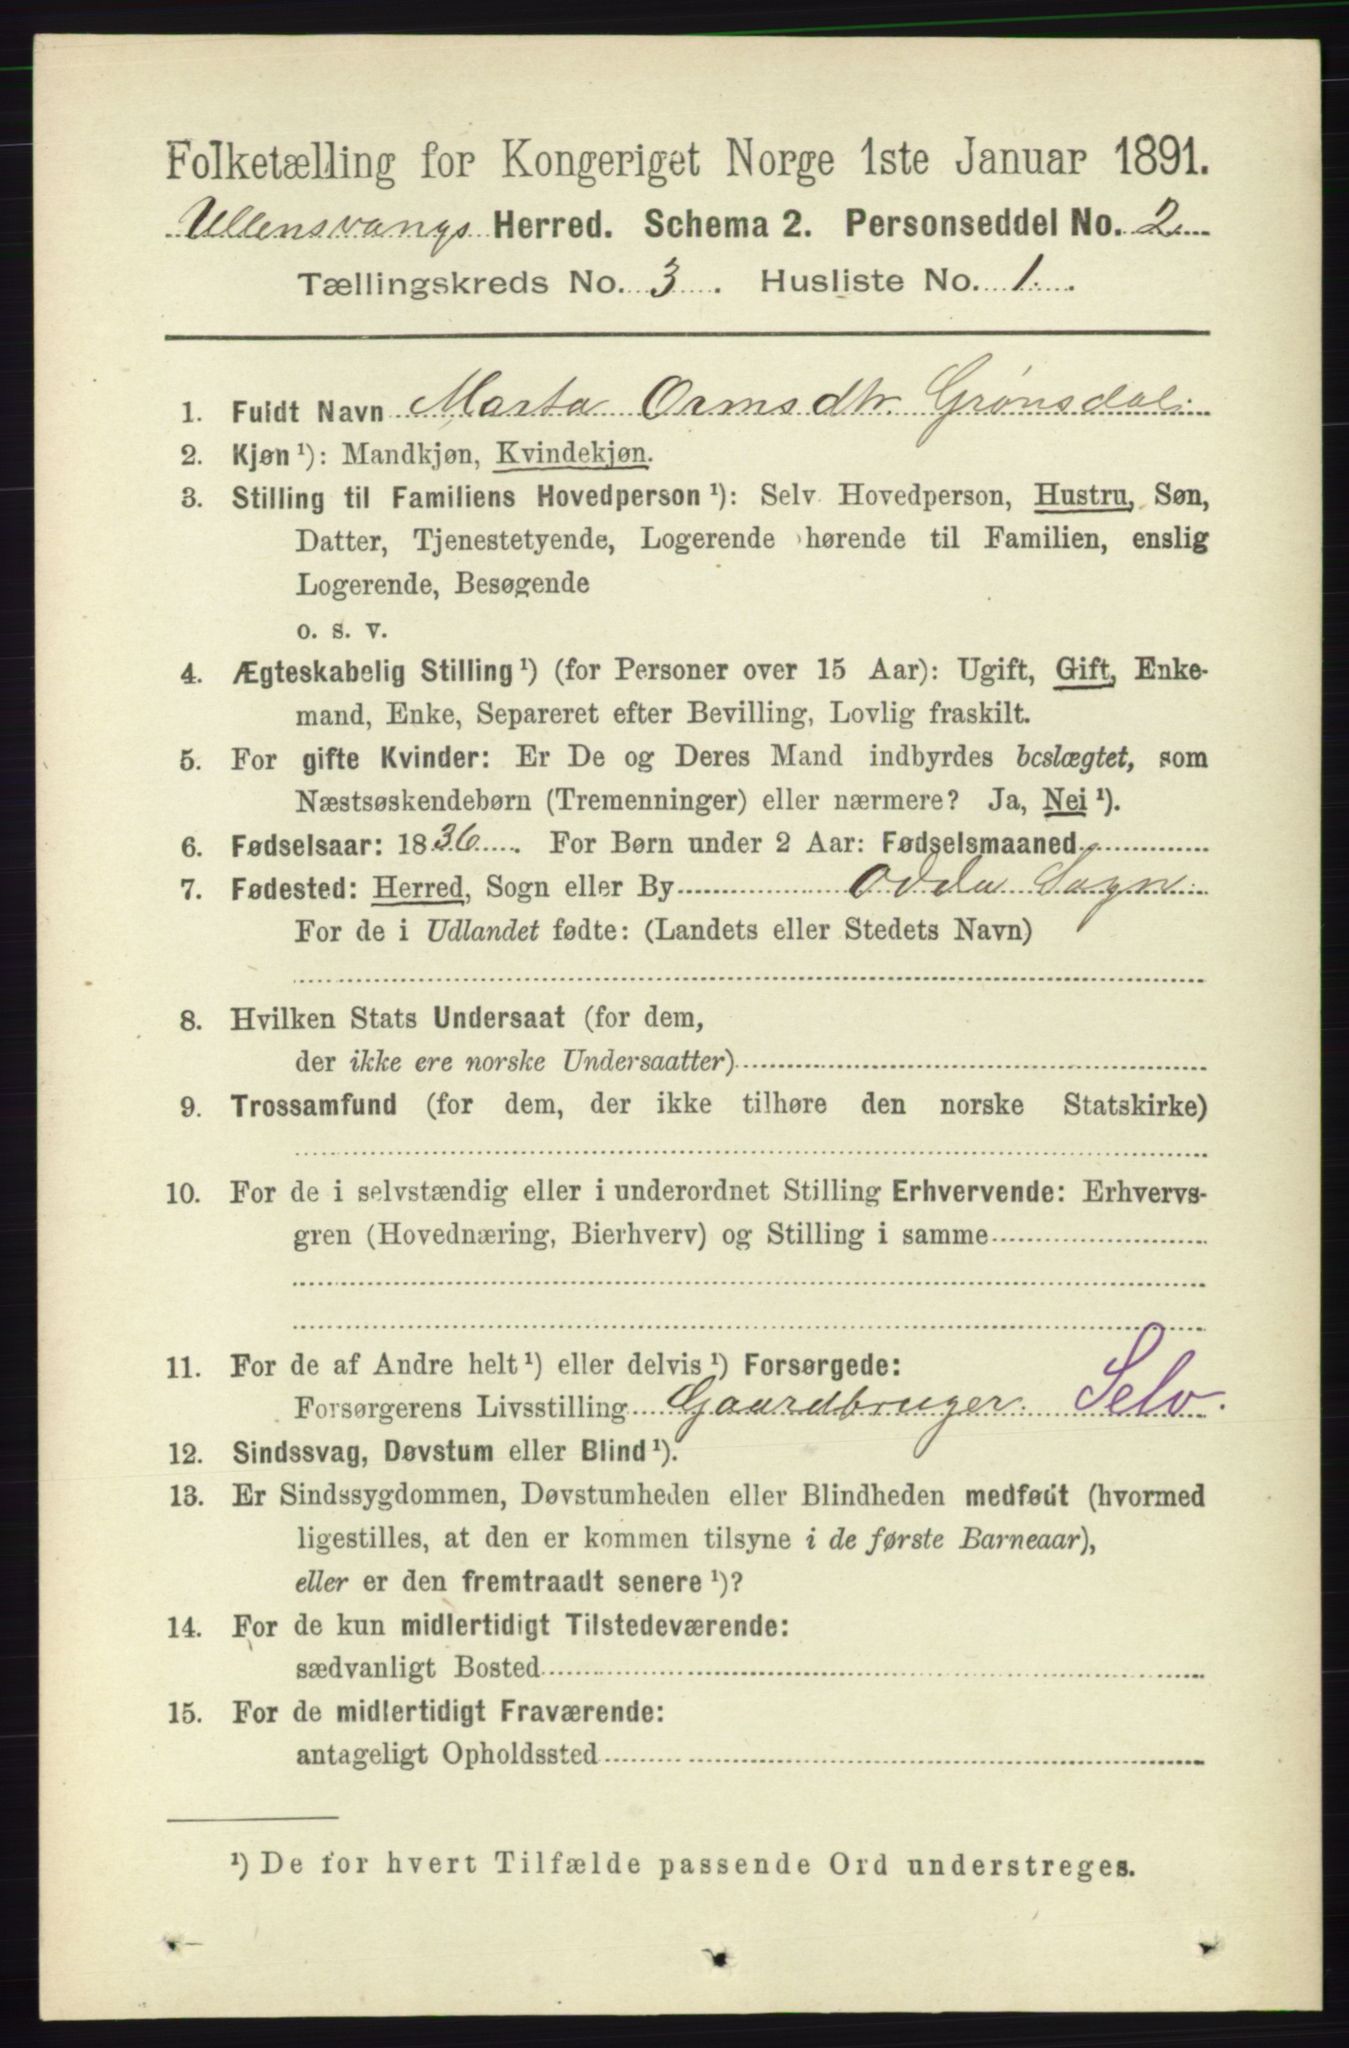 Folketælling for Kongeriget Norge 1ste Januar 1891.
Ullensvangs Herred. Schema 2. Personseddel No. 2
Tællingskreds No. 3. Husliste No. 1.
1. Fuldt Navn Marta Ormsdtr. Grønsdal.
2. Kjøn ¹): Mandkjøn, Kvindekjøn.
3. Stilling til Familiens Hovedperson ¹): Selv Hovedperson, Hustru, Søn,
Datter, Tjenestetyende, Logerende hørende til Familien, enslig
Logerende, Besøgende
o. s. v.
4. Ægteskabelig Stilling ¹) (for Personer over 15 Aar): Ugift, Gift, Enke-
mand, Enke, Separeret efter Bevilling, Lovlig fraskilt.
5. For gifte Kvinder: Er De og Deres Mand indbyrdes beslægtet, som
Næstsøskendebørn (Tremenninger) eller nærmere? Ja, Nei ¹).
6. Fødselsaar: 1836. For Børn under 2 Aar: Fødselsmaaned
7. Fødested: Herred, Sogn eller By Odda Sogn
For de i Udlandet fødte: (Landets eller Stedets Navn)
8. Hvilken Stats Undersaat (for dem,
der ikke ere norske Undersaatter)
9. Trossamfund (for dem, der ikke tilhøre den norske Statskirke)
10. For de i selvstændig eller i underordnet Stilling Erhvervende: Erhvervs-
gren (Hovednæring, Bierhverv) og Stilling i samme
11. For de af Andre helt ¹) eller delvis ¹) Forsørgede:
Forsørgerens Livsstilling Gaardbruger. Selv.
12. Sindssvag, Døvstum eller Blind ¹).
13. Er Sindssygdommen, Døvstumheden eller Blindheden medfødt (hvormed
ligestilles, at den er kommen tilsyne i de første Barneaar),
eller er den fremtraadt senere ¹)?
14. For de kun midlertidigt Tilstedeværende:
sædvanligt Bosted
15. For de midlertidigt Fraværende:
antageligt Opholdssted
¹) De for hvert Tilfælde passende Ord understreges.